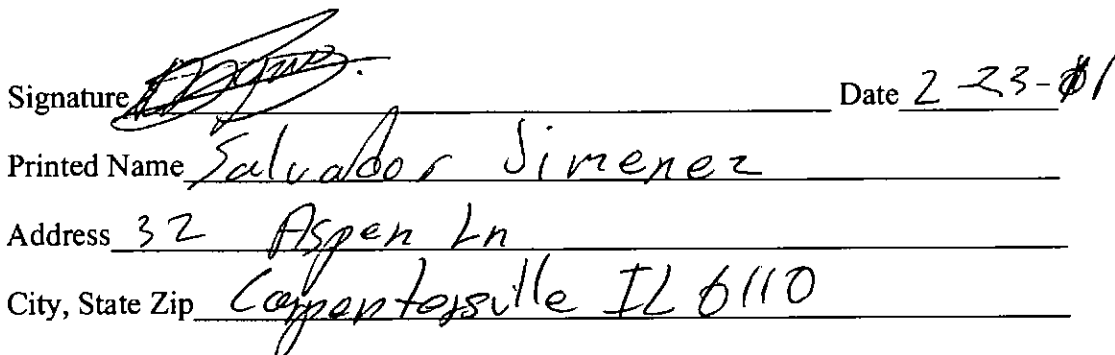 Signature Date 2-23-01
Printed Name Salvador Jimenez
Address 32 Aspen Ln
City, State Zip Carpentersville IL 6110